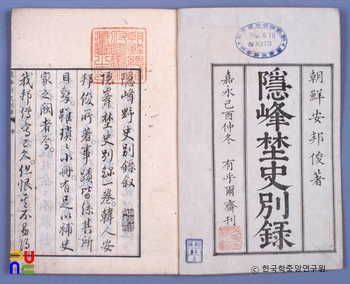 朝鮮安邦俊著
隱峰埜史別錄
嘉永己酉仲冬 有乎爾齋刊
隱峰野史別錄敘
隱峯埜史別錄一卷韓人安
邦俊所著事蹟皆係其所
目擊雖瑣々小冊有足以補史
家之缺者焉
我邦傳寫已久但恨其不易得
ⓒ 한국학중앙연구원